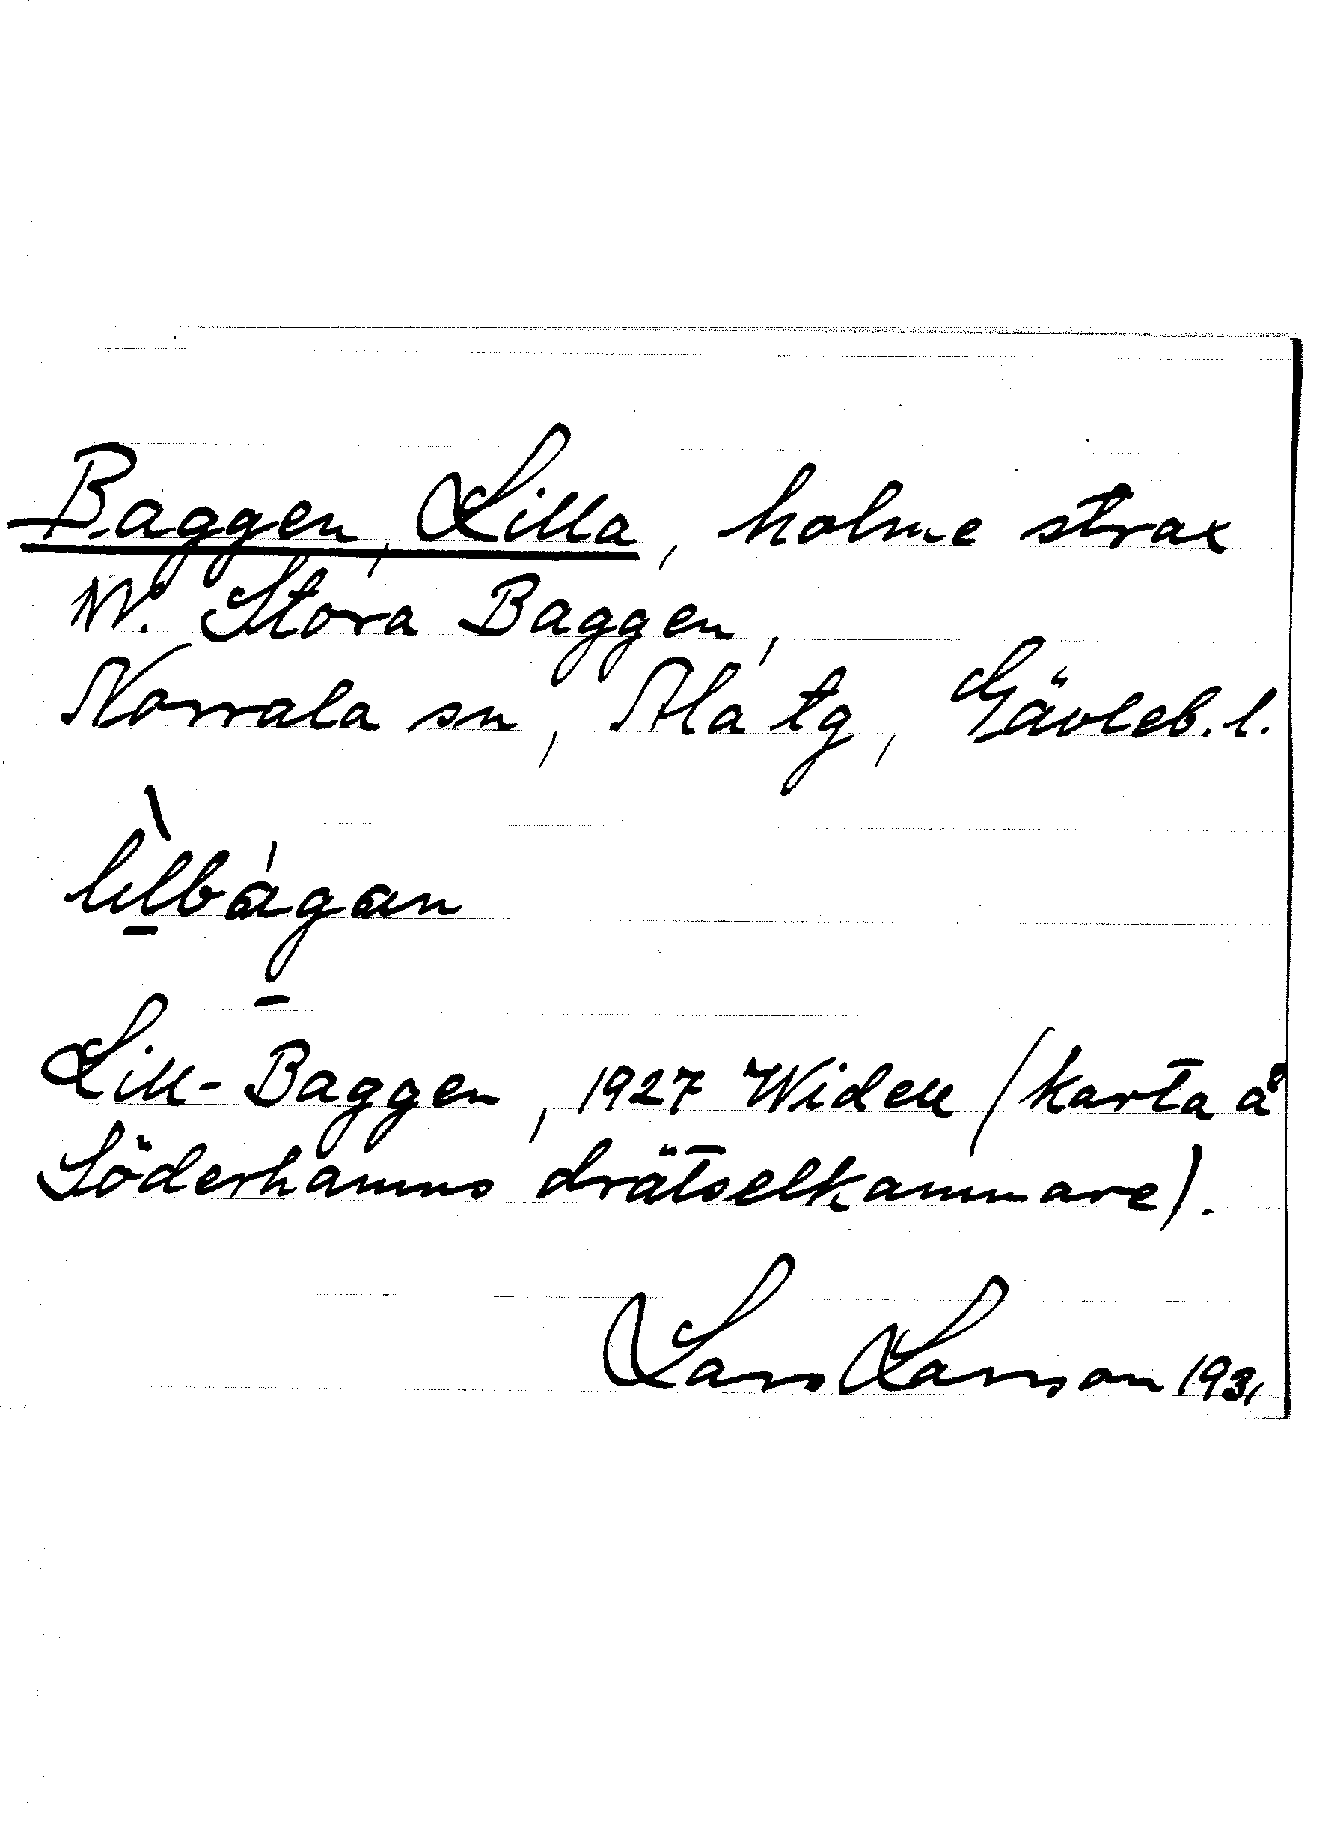 Baggen, Lilla, holme strax
N. Stora Baggen,
Norrala sn, Ala tg, Gävleb. l.
lìl̠bág̠an
Lill-Baggen, 1927 Widell (karta å
Söderhamns drätselkammare).
Lars Larsson 1931